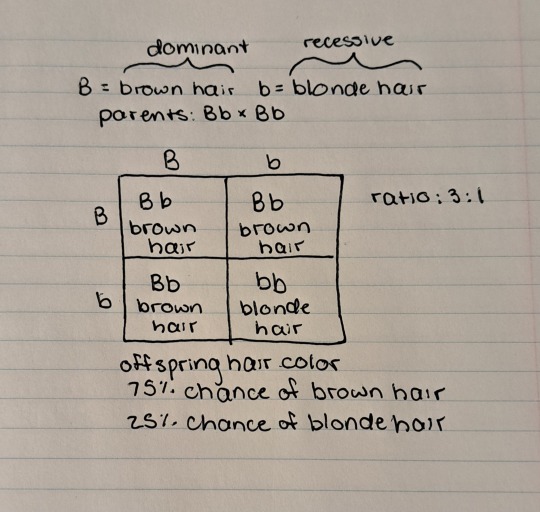 dominant recessive
B = brown hair b = blonde hair
parents: Bb × Bb
B b
B Bb Bb ratio: 3:1
brown brown
hair hair
b Bb bb
brown blonde
hair hair
offspring hair color
75% chance of brown hair
25% chance of blonde hair